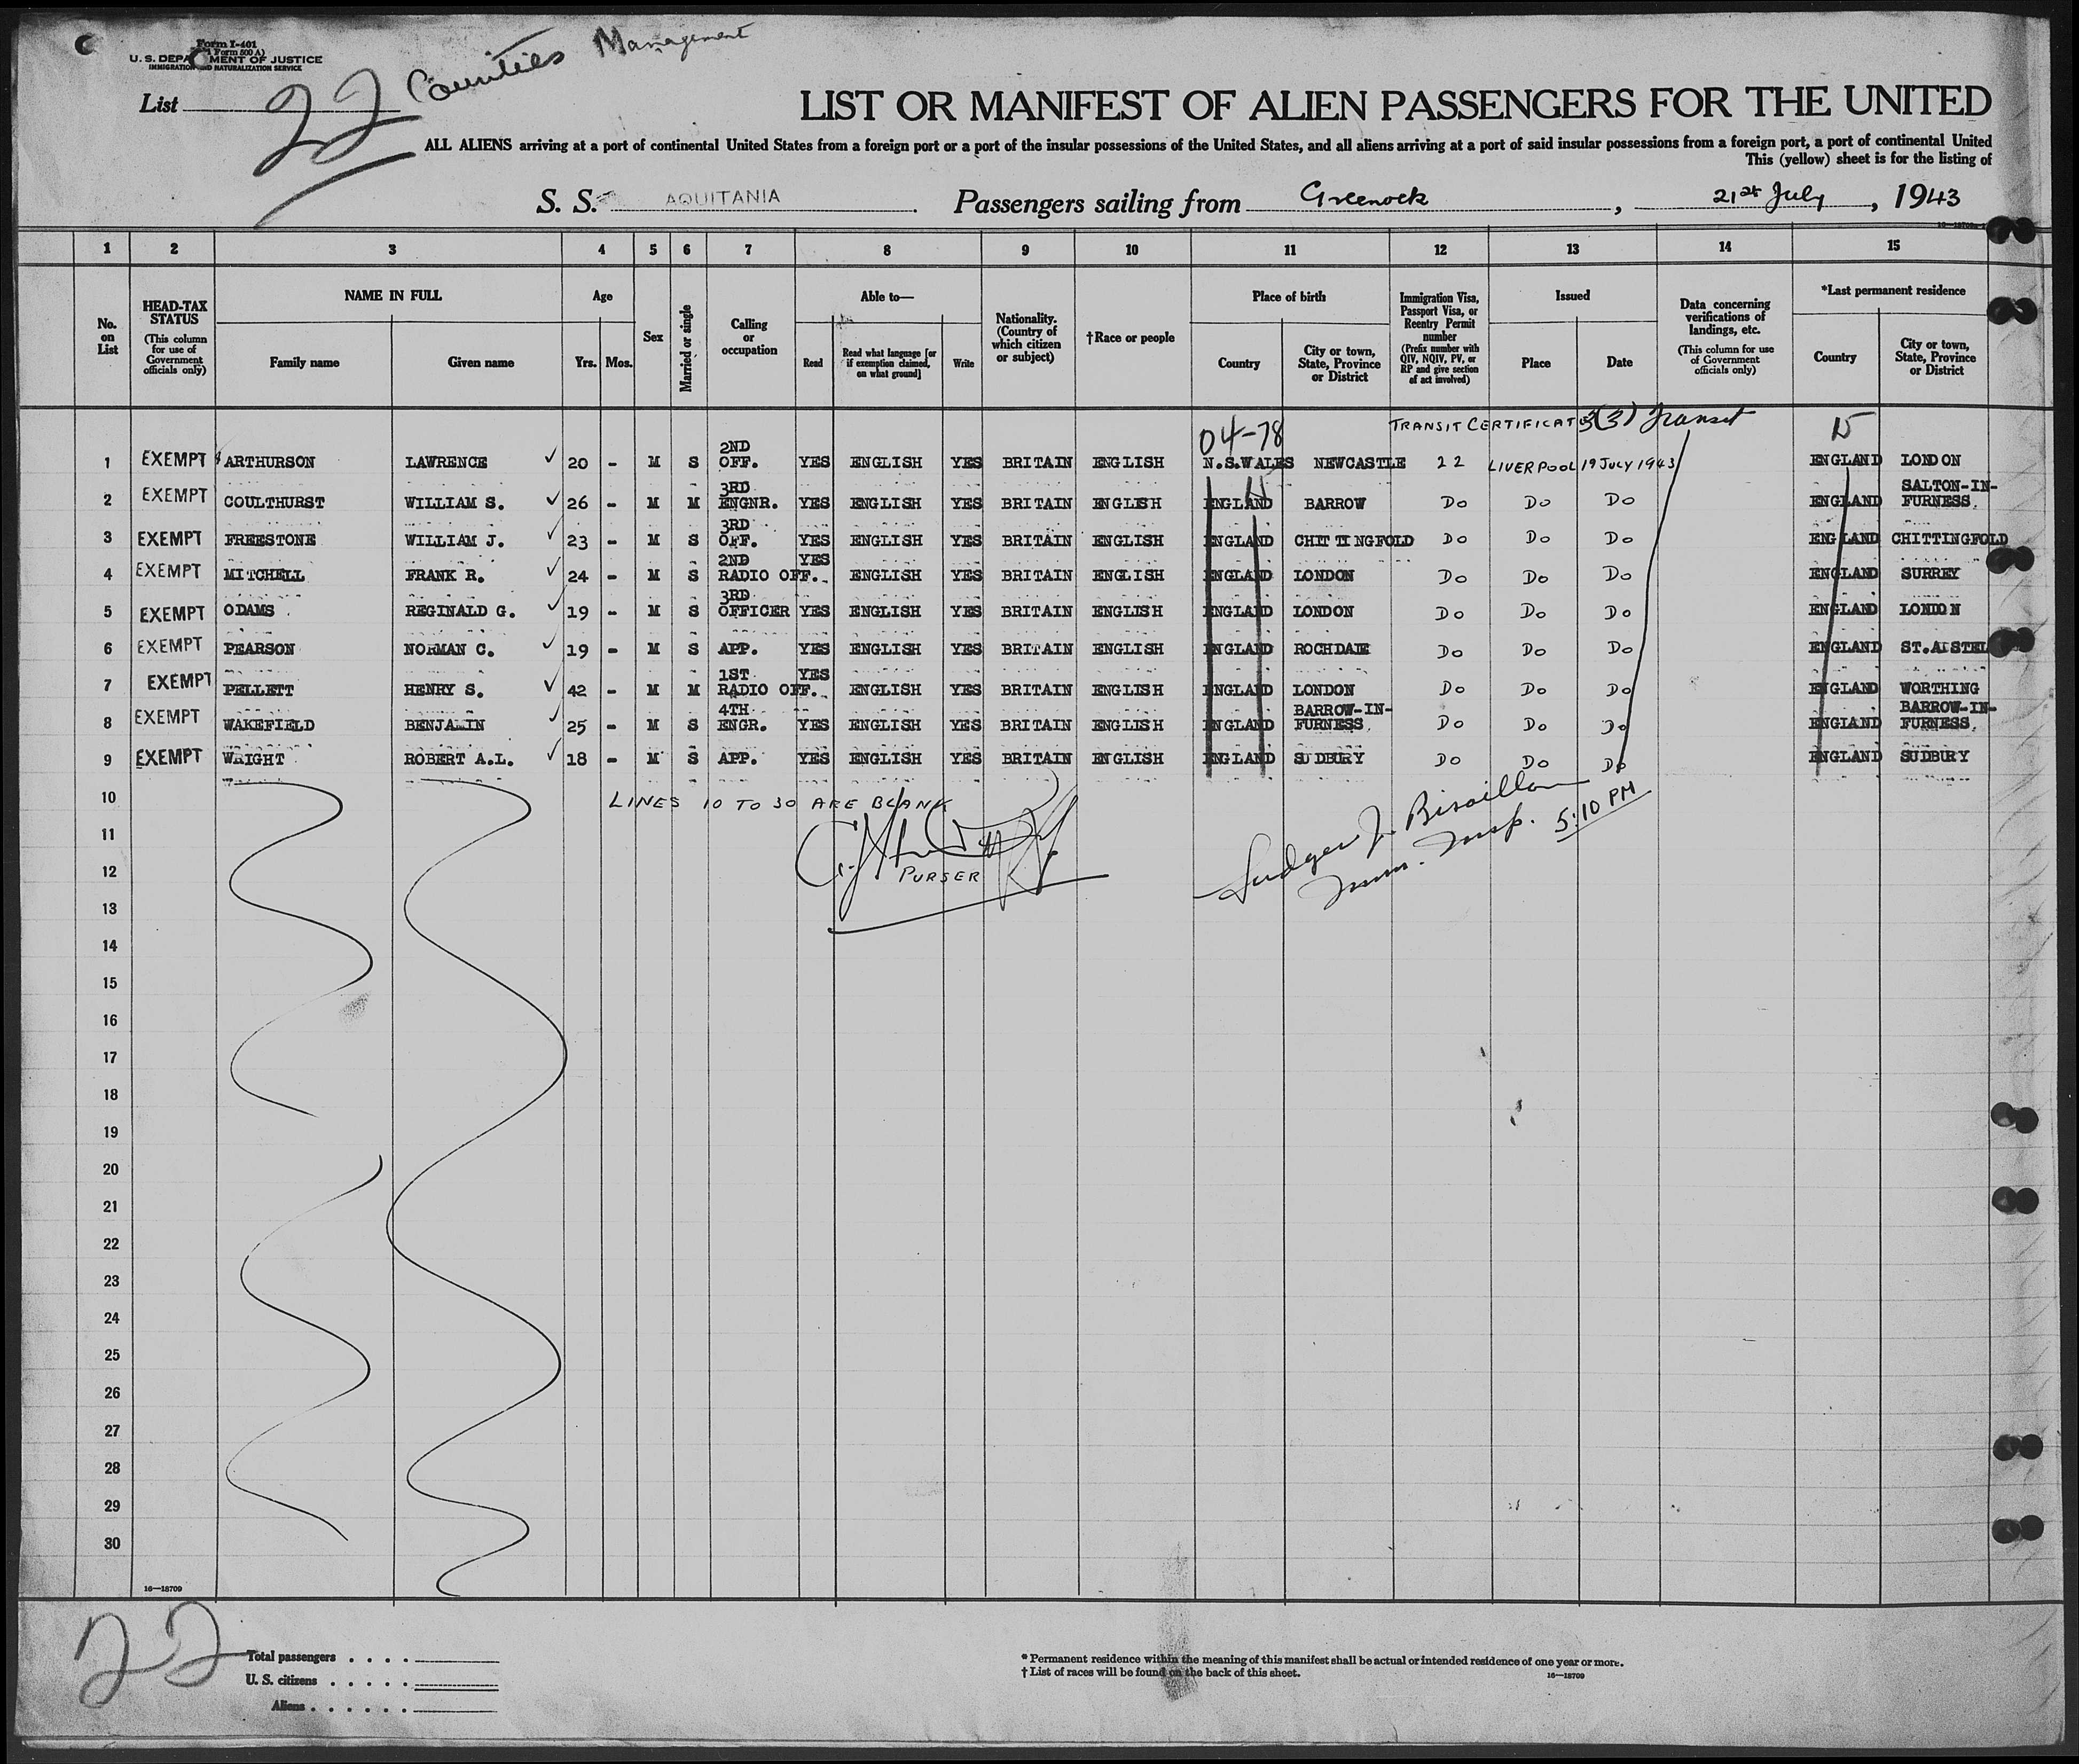 Form I-401
U. S. DEPARTMENT OF JUSTICE
IMMIGRATION AND NATURALIZATION SERVICE
Counties Management
List 22
LIST OR MANIFEST OF ALIEN PASSENGERS FOR THE UNITED
ALL ALIENS arriving at a port of continental United States from a foreign port or a port of the insular possessions of the United States, and all aliens arriving at a port of said insular possessions from a foreign port, a port of continental United
This (yellow) sheet is for the listing of
S. S. AQUITANIA Passengers sailing from Greenock, 21st July, 1943
1 2 3 4 5 6 7 8 9 10 11 12 13 14 15
No. on List
HEAD-TAX STATUS (This column for use of Government officials only)
NAME IN FULL Family name Given name
Age Yrs. Mos.
Sex
Married or single
Calling or occupation
Able to— Read Read what language [or if exemption claimed, on what ground] Write
Nationality. (Country of which citizen or subject)
†Race or people
Place of birth Country City or town, State, Province or District
Immigration Visa, Passport Visa, or Reentry Permit number (Prefix number with QIV, NQIV, PV, or RP and give section of act involved)
Issued Place Date
Data concerning verifications of landings, etc. (This column for use of Government officials only)
*Last permanent residence Country City or town, State, Province or District
04-78 TRANSIT CERTIFICATE 3(3) Transit 15
1 EXEMPT ARTHURSON LAWRENCE ✓ 20 - M S 2ND OFF. YES ENGLISH YES BRITAIN ENGLISH N.S.WALES NEWCASTLE 22 LIVERPOOL 19 JULY 1943 ENGLAND LONDON
2 EXEMPT COULTHURST WILLIAM S. ✓ 26 - M M 3RD ENGNR. YES ENGLISH YES BRITAIN ENGLISH ENGLAND BARROW Do Do Do ENGLAND SALTON-IN-FURNESS.
3 EXEMPT FREESTONE WILLIAM J. ✓ 23 - M S 3RD OFF. YES ENGLISH YES BRITAIN ENGLISH ENGLAND CHITTINGFOLD Do Do Do ENGLAND CHITTINGFOLD
4 EXEMPT MITCHELL FRANK R. ✓ 24 - M S 2ND RADIO OFF. YES ENGLISH YES BRITAIN ENGLISH ENGLAND LONDON Do Do Do ENGLAND SURREY
5 EXEMPT ODAMS REGINALD G. ✓ 19 - M S 3RD OFFICER YES ENGLISH YES BRITAIN ENGLISH ENGLAND LONDON Do Do Do ENGLAND LONDON
6 EXEMPT PEARSON NORMAN C. ✓ 19 - M S APP. YES ENGLISH YES BRITAIN ENGLISH ENGLAND ROCHDALE Do Do Do ENGLAND ST.AUSTEL
7 EXEMPT PELLETT HENRY S. ✓ 42 - M M 1ST RADIO OFF. YES ENGLISH YES BRITAIN ENGLISH ENGLAND LONDON Do Do Do ENGLAND WORTHING
8 EXEMPT WAKEFIELD BENJAMIN ✓ 25 - M S 4TH ENGR. YES ENGLISH YES BRITAIN ENGLISH ENGLAND BARROW-IN-FURNESS. Do Do Do ENGLAND BARROW-IN-FURNESS.
9 EXEMPT WRIGHT ROBERT A.L. ✓ 18 - M S APP. YES ENGLISH YES BRITAIN ENGLISH ENGLAND SUDBURY Do Do Do ENGLAND SUDBURY
10 LINES 10 TO 30 ARE BLANK
11
12 PURSER
Imm. Insp. 5:10 PM
13
14
15
16
17
18
19
20
21
22
23
24
25
26
27
28
29
30
16—18709
22
Total passengers . . . .
U. S. citizens . . . . .
Aliens . . . . . .
* Permanent residence within the meaning of this manifest shall be actual or intended residence of one year or more.
† List of races will be found on the back of this sheet.
16—18709